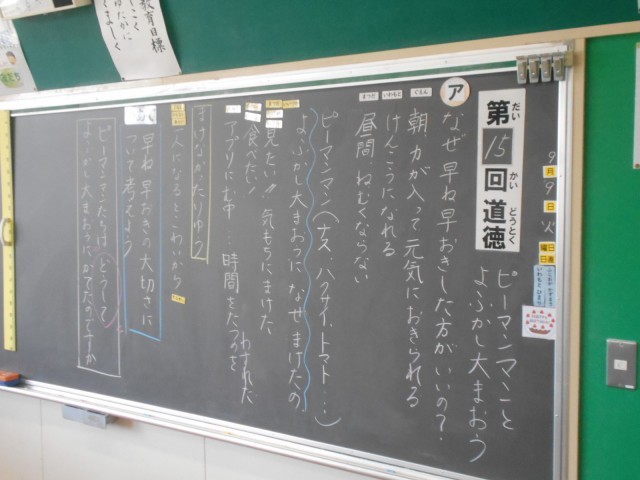 9月9日火曜日
日直
第15回道徳
だい
かい
どうとく
ピーマンマンと
よふかし大まおう
ア
なぜ早ね早おきした方がいいの？
朝、力が入って元気におきられる
けんこうになれる
昼間、ねむくならない
ピーマンマン(ナス、ハクサイ、トマト…)
よふかし大まおうになぜまけたの
見たい!! 気もちにまけた
食べたい!
アプリにむ中…時間をたつのを
わすれた
まけなかったりゆう
一人になるとこわいから
早ね早おきの大切さに
ついて考えよう
ピーマンマンたちはどうして、
よふかし大まおうにかてたのですか
教育目標